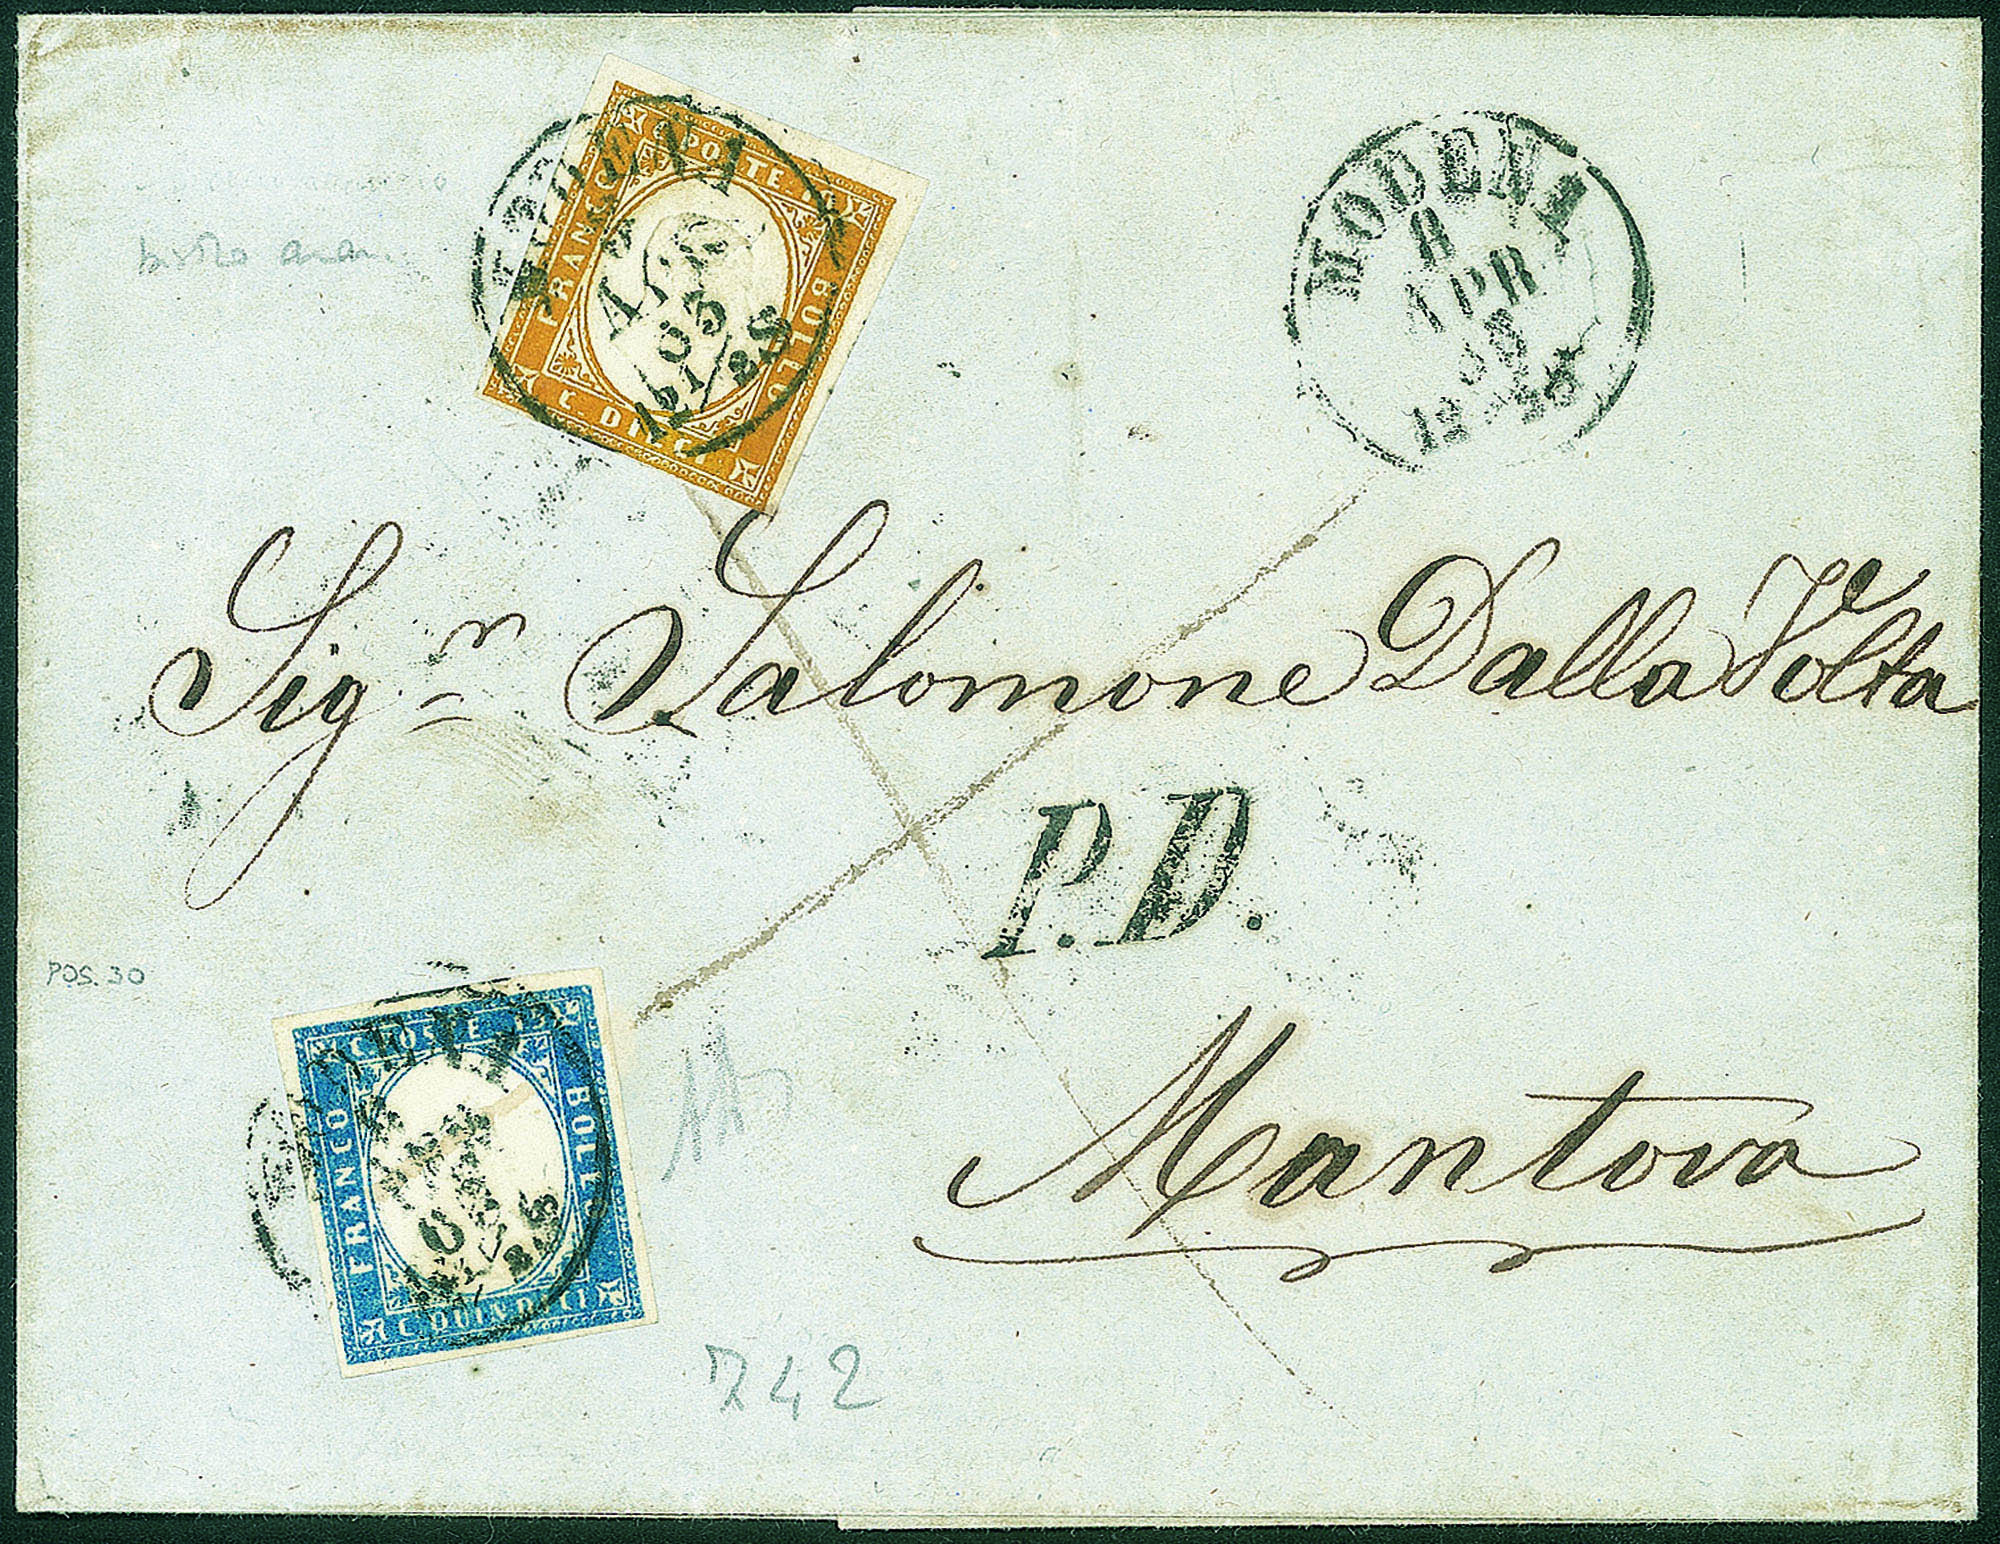 C. POSTE
FRANCO
BOLLO
C. DIECI
MODENA
8
APR
63
12
Sig.r Salomone Dalla Volta
P.D.
Mantova
POS. 30
C. POSTE
FRANCO
BOLLO
C. QUINDICI
742